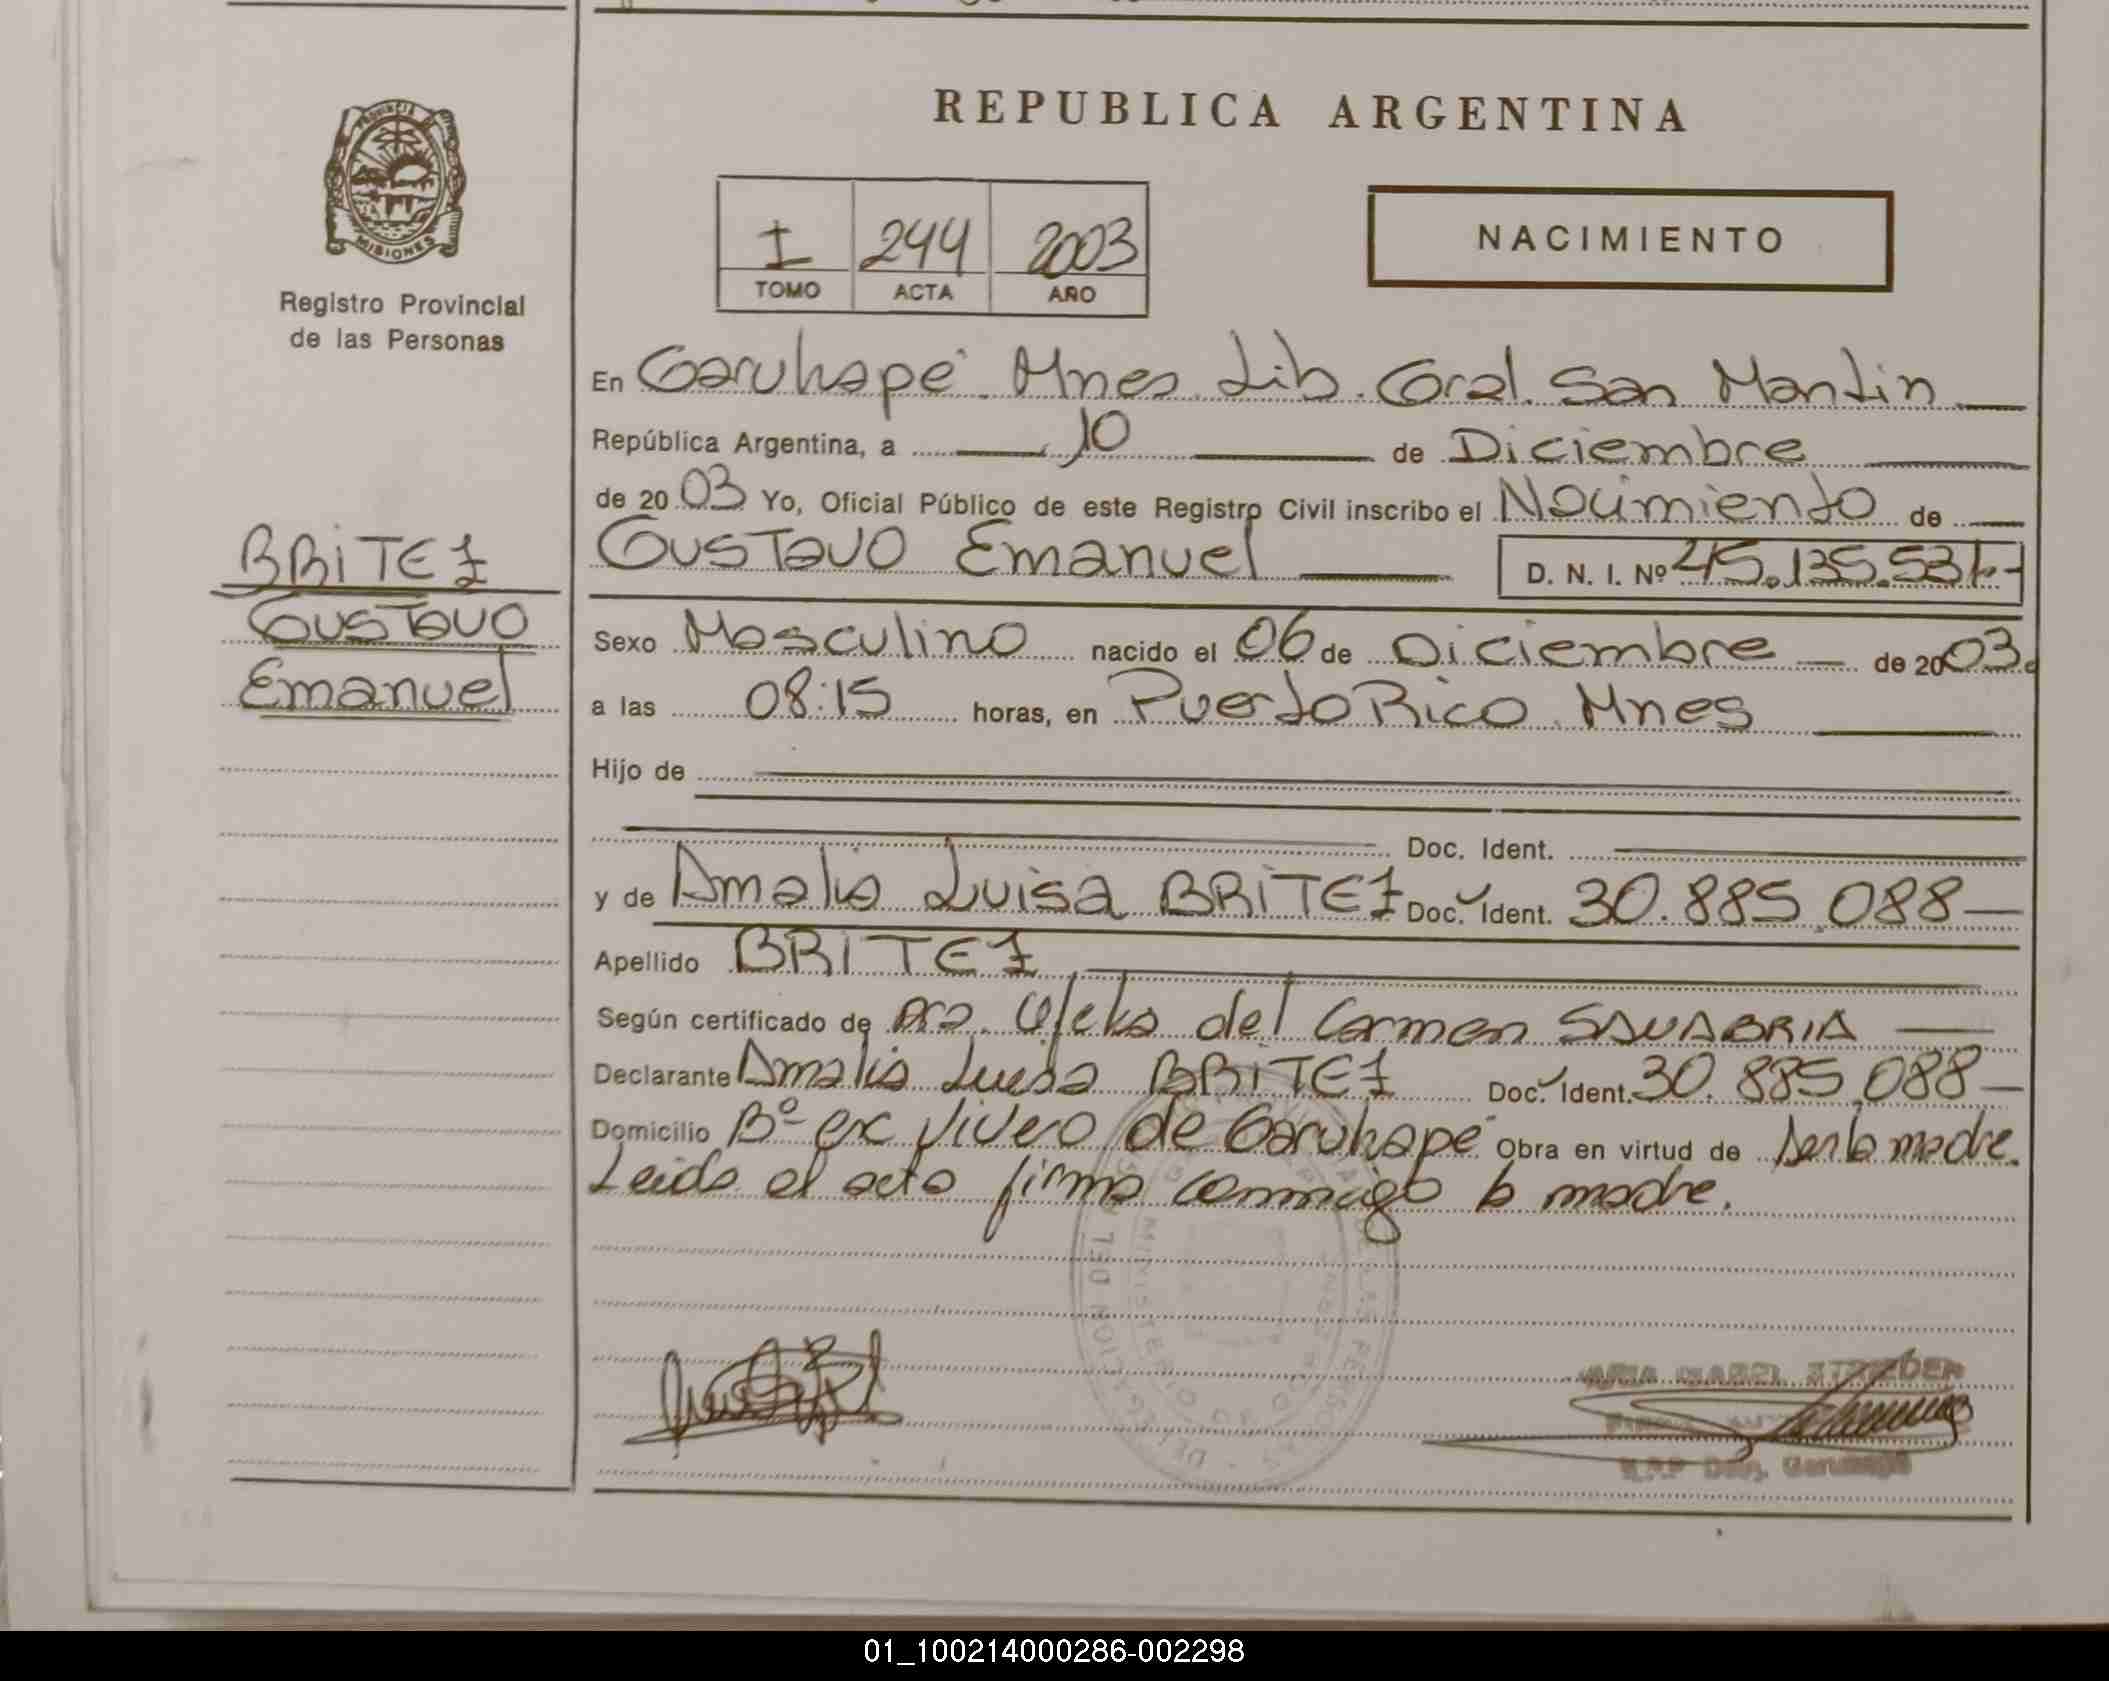 REPUBLICA ARGENTINA
PROVINCIA
MISIONES
Registro Provincial
de las Personas
I 244 2003
TOMO ACTA AÑO
NACIMIENTO
En Garuhapé Mnes. Lib. Gral. San Martin
República Argentina, a 10 de Diciembre
de 2003 Yo, Oficial Público de este Registro Civil inscribo el Nacimiento de
GUSTavO Emanuel D. N. I. Nº 45.135.531.-
BRITEZ
GUSTavO
Emanuel
Sexo Masculino nacido el 06 de Diciembre de 2003.
a las 08:15 horas, en Puerto Rico Mnes
Hijo de
Doc. Ident.
y de Amalia Luisa BRITEZ Doc. Ident. 30.885.088
Apellido BRITEZ
Según certificado de Dra. del Carmen SANABRIA
Declarante Amalia Luisa BRITEZ Doc. Ident. 30.885.088
Domicilio Bº ex vivero de Garuhapé Obra en virtud de ser la madre.
Leida el acta firma conmigo la madre.
01_100214000286-002298